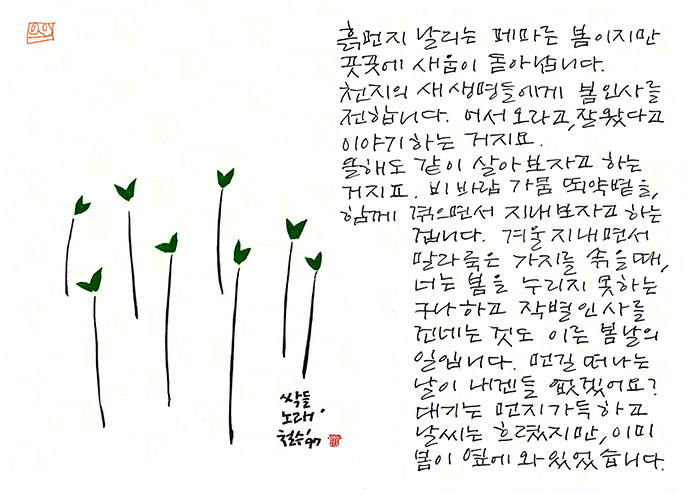 흙먼지 날리는 메마른 봄이지만
풋풋에 새움이 돋아납니다.
천지의 새 생명들에게 봄인사를
전합니다. 어서 오라고, 잘 왔다고
이야기하는 거지요.
올해도 같이 살아보자고 하는
거지요. 비바람 가뭄 뙤약볕을,
함께 겪으면서 지내보자고 하는
겁니다. 겨울 지내면서
말라죽은 가지를 솎을 때,
너는 봄을 누리지 못하는
구나 하고 작별인사를
건네는 것도 이른 봄날의
일입니다. 먼길 떠나는
날이 내겐들 없겠어요?
대기는 먼지 가득하고
날씨는 흐렸지만, 이미
봄이 옆에 와 있었습니다.
싹들
노래'
철수 '97